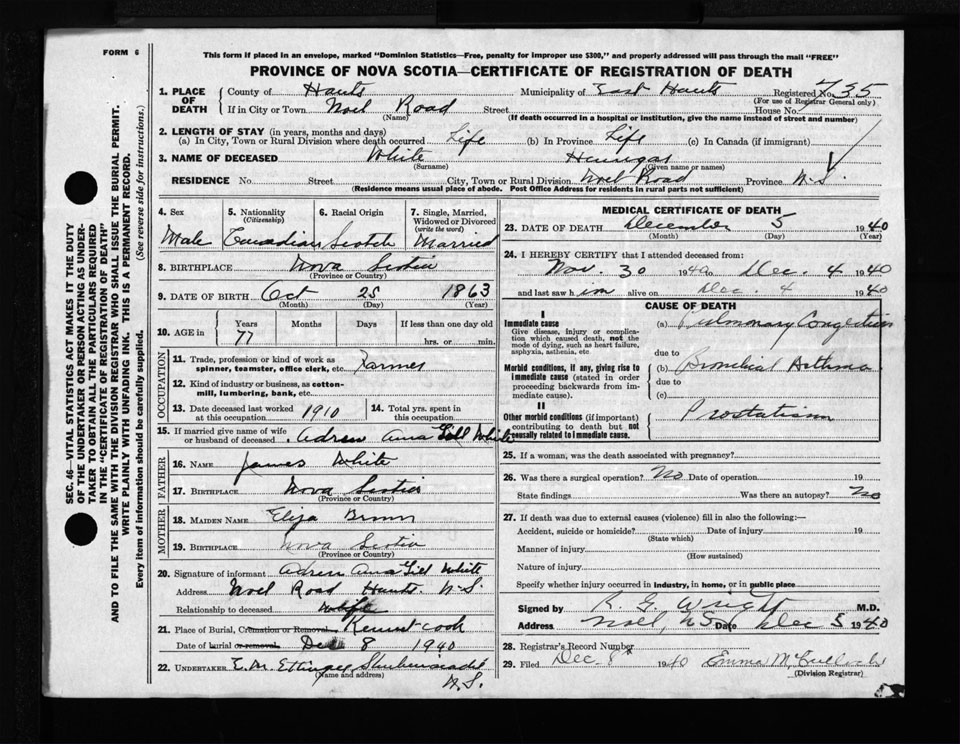 FORM 6
This form if placed in an envelope, marked "Dominion Statistics—Free, penalty for improper use $300," and properly addressed will pass through the mail "FREE"
PROVINCE OF NOVA SCOTIA—CERTIFICATE OF REGISTRATION OF DEATH
1. PLACE OF DEATH County of Hants Municipality of East Hants Registered No. 735
(For use of Registrar General only)
If in City or Town Noel Road Street House No.
(Name) (If death occurred in a hospital or institution, give the name instead of street and number)
2. LENGTH OF STAY (in years, months and days)
(a) In City, Town or Rural Division where death occurred Life (b) In Province Life (c) In Canada (if immigrant)
3. NAME OF DECEASED White Hennigar
(Surname) (Given name or names)
RESIDENCE No. Street City, Town or Rural Division Noel Road Province N.S.
(Residence means usual place of abode. Post Office Address for residents in rural parts not sufficient)
4. Sex 5. Nationality (Citizenship) 6. Racial Origin 7. Single, Married, Widowed or Divorced (write the word)
Male Canadian Scotch Married
8. BIRTHPLACE Nova Scotia
(Province or Country)
9. DATE OF BIRTH Oct 25 1863
(Month) (Day) (Year)
10. AGE in Years Months Days If less than one day old
77 hrs. or min.
OCCUPATION
11. Trade, profession or kind of work as spinner, teamster, office clerk, etc. Farmer
12. Kind of industry or business, as cotton-mill, lumbering, bank, etc.
13. Date deceased last worked at this occupation 1910 14. Total yrs. spent in this occupation
15. If married give name of wife or husband of deceased. Gill White
FATHER
16. NAME James White
17. BIRTHPLACE Nova Scotia
(Province or Country)
MOTHER
18. MAIDEN NAME Eliza Brown
19. BIRTHPLACE Nova Scotia
(Province or Country)
20. Signature of informant Gill White
Address Noel Road Hants N.S.
Relationship to deceased wife
21. Place of Burial, Cremation or Removal Kennetcook
Date of burial or removal Dec 8 1940
22. UNDERTAKER E.M. Ettinger Shubenacadie
(Name and address)
N.S.
MEDICAL CERTIFICATE OF DEATH
23. DATE OF DEATH December 5 1940
(Month) (Day) (Year)
24. I HEREBY CERTIFY that I attended deceased from:
Nov. 30 1940 to Dec. 4 1940
and last saw him alive on Dec. 4 1940
CAUSE OF DEATH
I
Immediate cause (a) Pulmonary Congestion
Give disease, injury or complication which caused death, not the mode of dying, such as heart failure, asphyxia, asthenia, etc.
due to
Morbid conditions, if any, giving rise to immediate cause (stated in order proceeding backwards from immediate cause). (b) Bronchial Asthma
due to
(c)
II
Other morbid conditions (if important) contributing to death but not causally related to immediate cause. Prostatism
25. If a woman, was the death associated with pregnancy?
26. Was there a surgical operation? No Date of operation 19
State findings Was there an autopsy? No
27. If death was due to external causes (violence) fill in also the following:—
Accident, suicide or homicide? Date of injury 19
(State which)
Manner of injury
(How sustained)
Nature of injury
Specify whether injury occurred in industry, in home, or in public place
Signed by R. G. Wright M.D.
Address Noel, N.S. Date Dec 5 1940
28. Registrar's Record Number
29. Filed Dec. 8 1940 Emma McCulloch
(Division Registrar)
SEC. 46—VITAL STATISTICS ACT MAKES IT THE DUTY
OF THE UNDERTAKER OR PERSON ACTING AS UNDERTAKER TO OBTAIN ALL THE PARTICULARS REQUIRED
IN THE "CERTIFICATE OF REGISTRATION OF DEATH"
AND TO FILE THE SAME WITH THE DIVISION REGISTRAR WHO SHALL ISSUE THE BURIAL PERMIT.
WRITE PLAINLY WITH UNFADING INK. THIS IS A PERMANENT RECORD.
Every item of information should be carefully supplied. (See reverse side for instructions.)